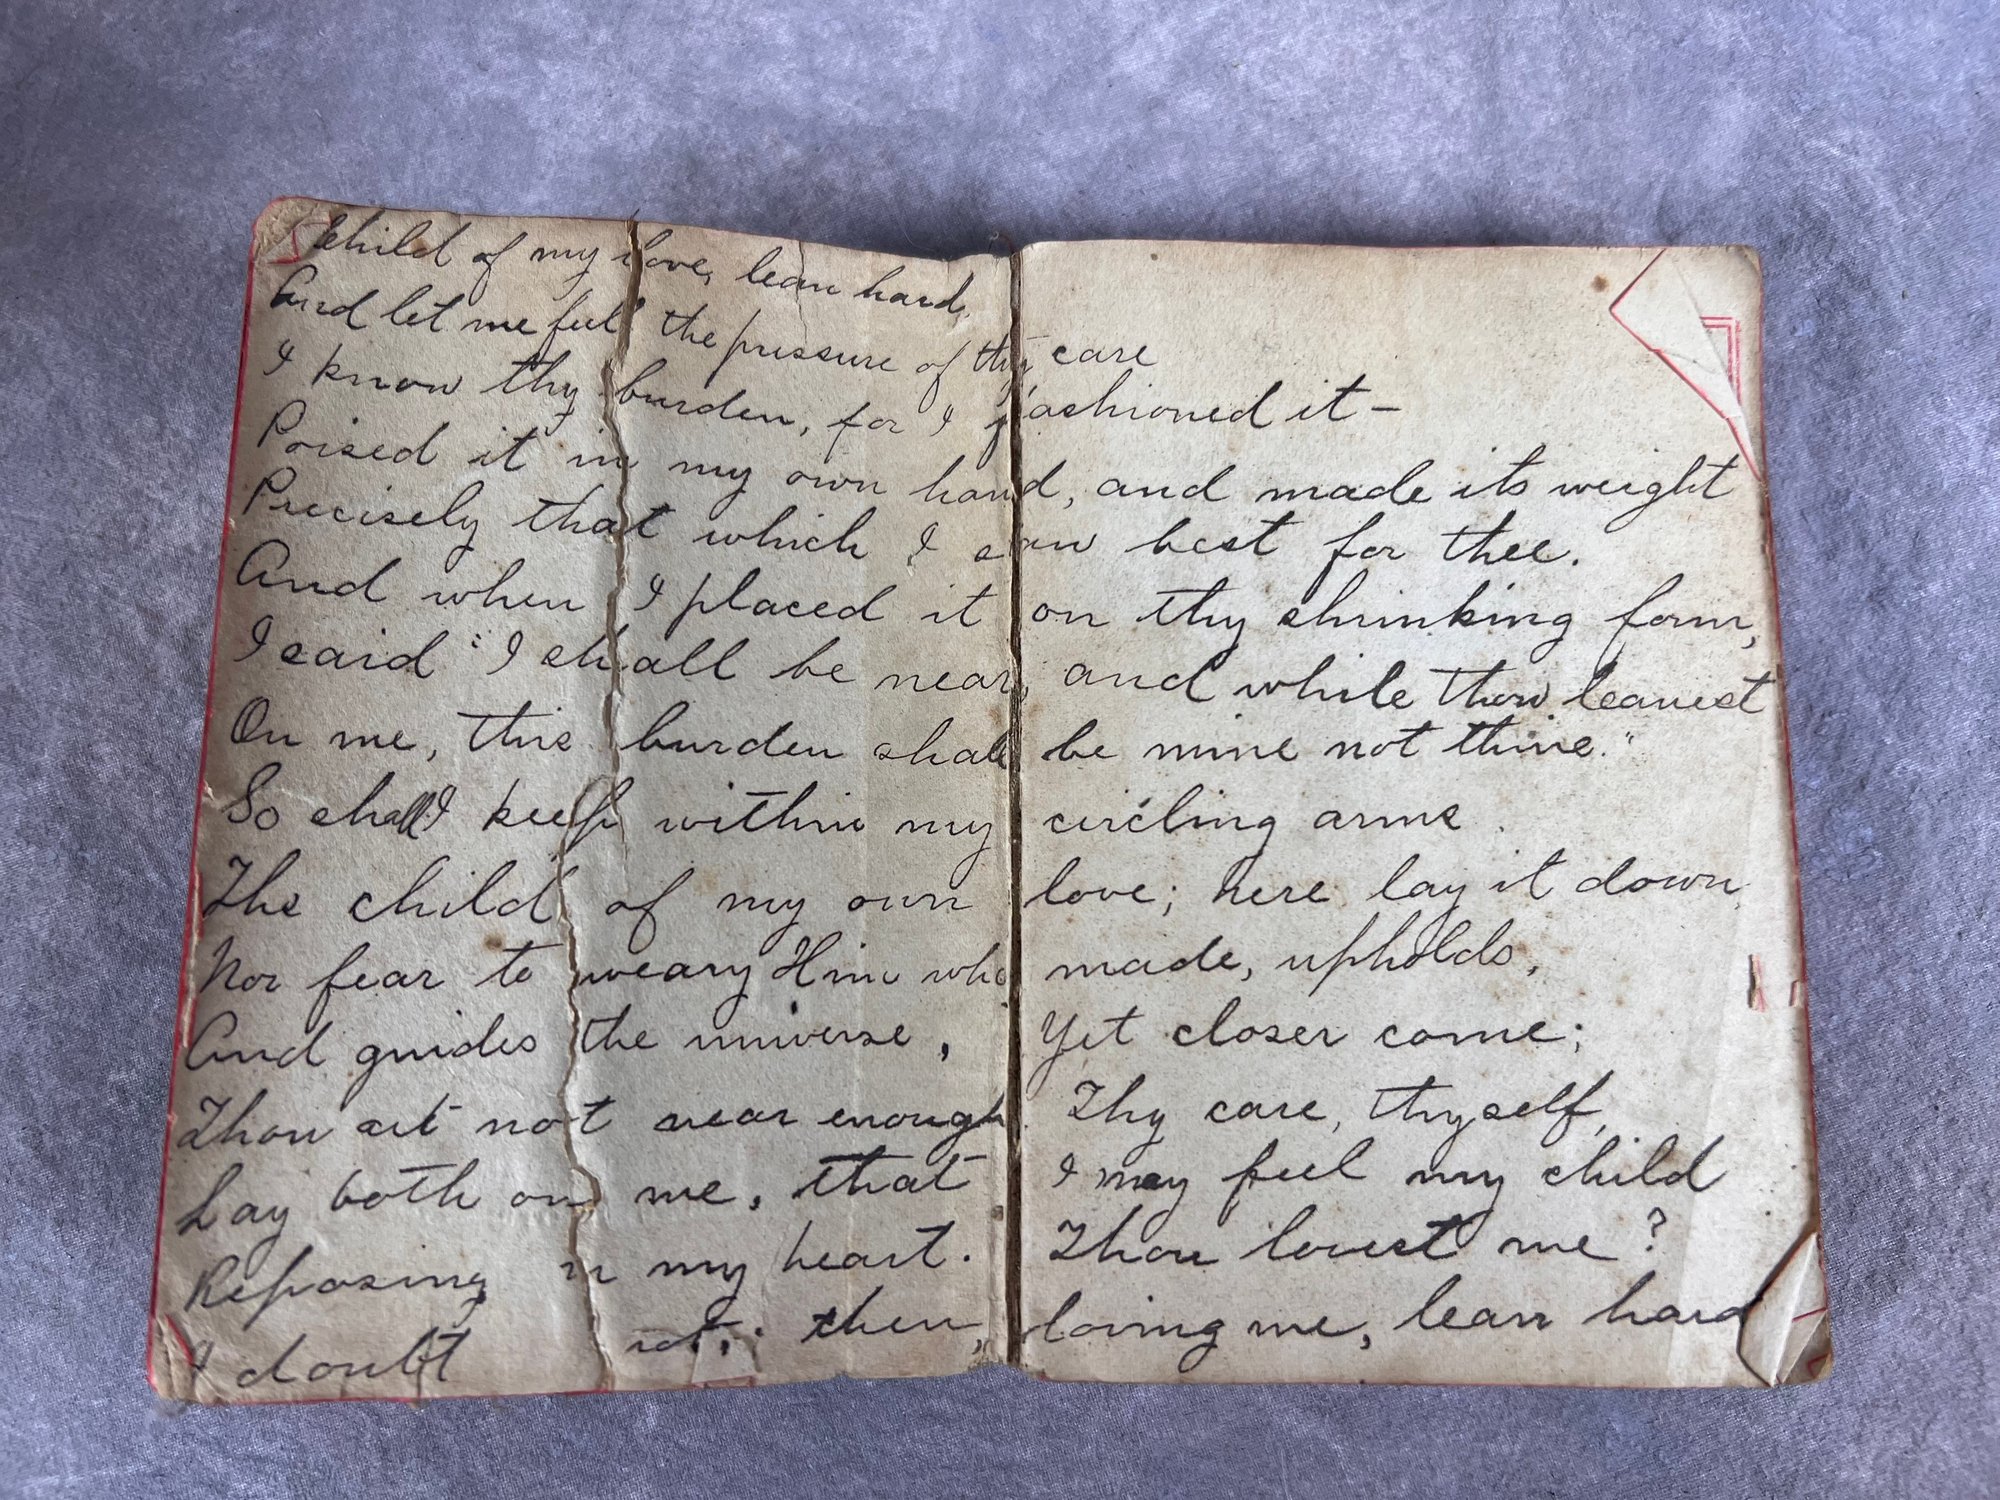 Child of my love, lean hard,
And let me feel the pressure of thy care
I know thy burden, for I fashioned it –
Poised it in my own hand, and made its weight
Precisely that which I saw best for thee.
And when I placed it on thy shrinking form,
I said "I shall be near, and while thou leanest
On me, this burden shall be mine not thine."
So shall I keep within my circling arms
The child of my own love; here lay it down,
Nor fear to weary Him who made, upholds,
And guides the universe, Yet closer come;
Thou art not near enough. Thy care, thyself,
Lay both on me, that I may feel my child
Reposing on my heart. Thou lovest me?
I doubt not; then, loving me, lean hard